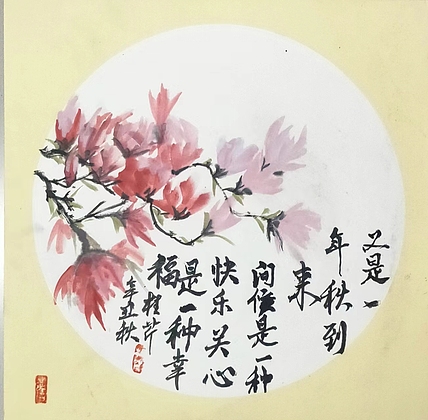 又是一
年秋到
来
问候是一种
快乐关心
是一种幸
福
辛丑秋